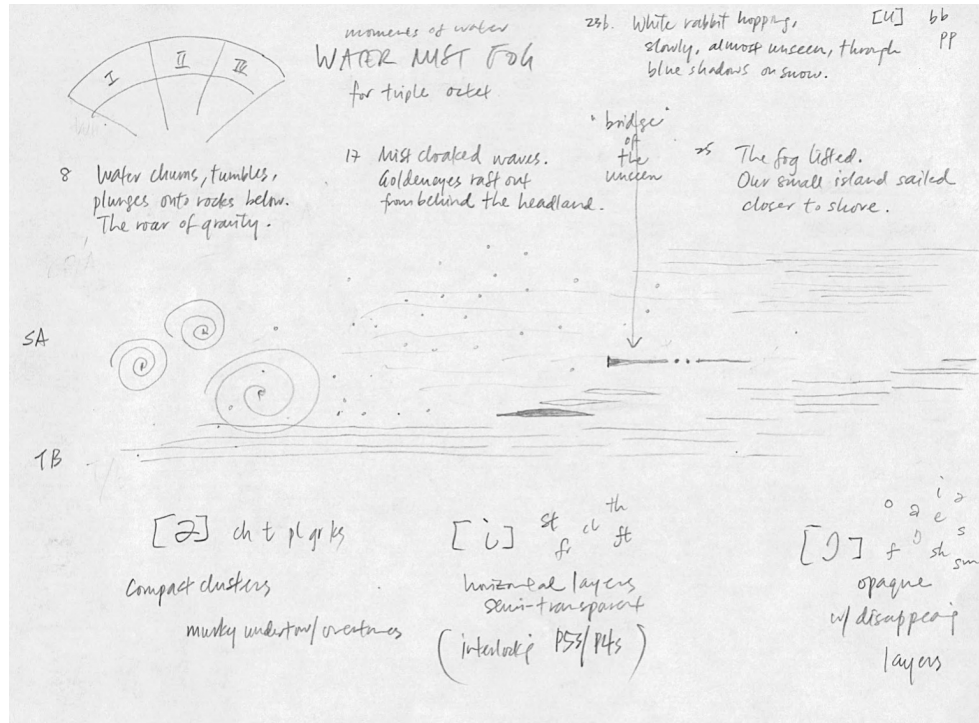 I II III
moments of water
WATER MIST FOG
for triple octet
23b. White rabbit hopping,
slowly, almost unseen, through
blue shadows on snow.
[u] bb
pp
"bridge"
of
the
unseen
8 Water churns, tumbles,
plunges onto rocks below.
The roar of gravity.
17 Mist cloaked waves.
Goldeneyes raft out
from behind the headland.
25 The fog lifted.
Our small island sailed
closer to shore.
SA
TB
ch t pl gr ks
compact clusters
murky undertow/overtones
[i] st ch th
fr ft
horizontal layers
semi-transparent
(interlocking P5s/P4s)
o a i a
e s
f sh sm
opaque
w/ disappearing
layers